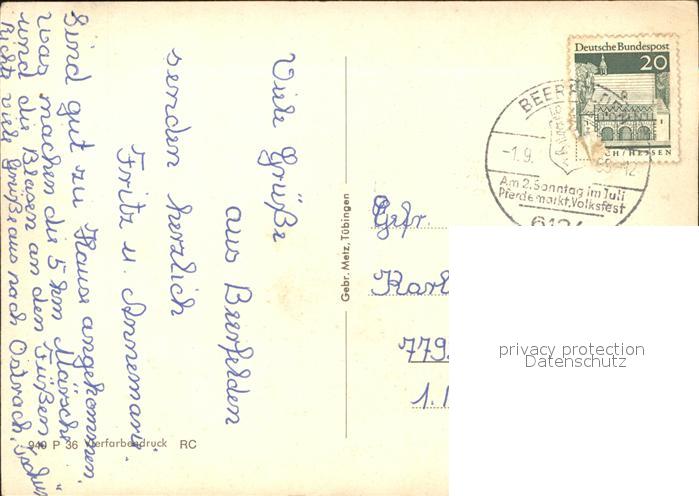 Viele Grüße
aus Beerfelden
senden herzlich
Fritz u. Annemarie.
Sind gut zu Hause angekommen,
was machen die 5 km Märsche
und die Blasen an den Füßen?
viele Grüße aus nach Ostrach,
940 P 36 Vierfarbendruck RC
Gebr. Metz, Tübingen
Deutsche Bundespost
20
CH/HESSEN
BEERF
-1.9.
-12
Am 2. Sonntag im Juli
Pferdemarkt, Volksfest
612
Gefr.
Karl
779
1.
privacy protection
Datenschutz